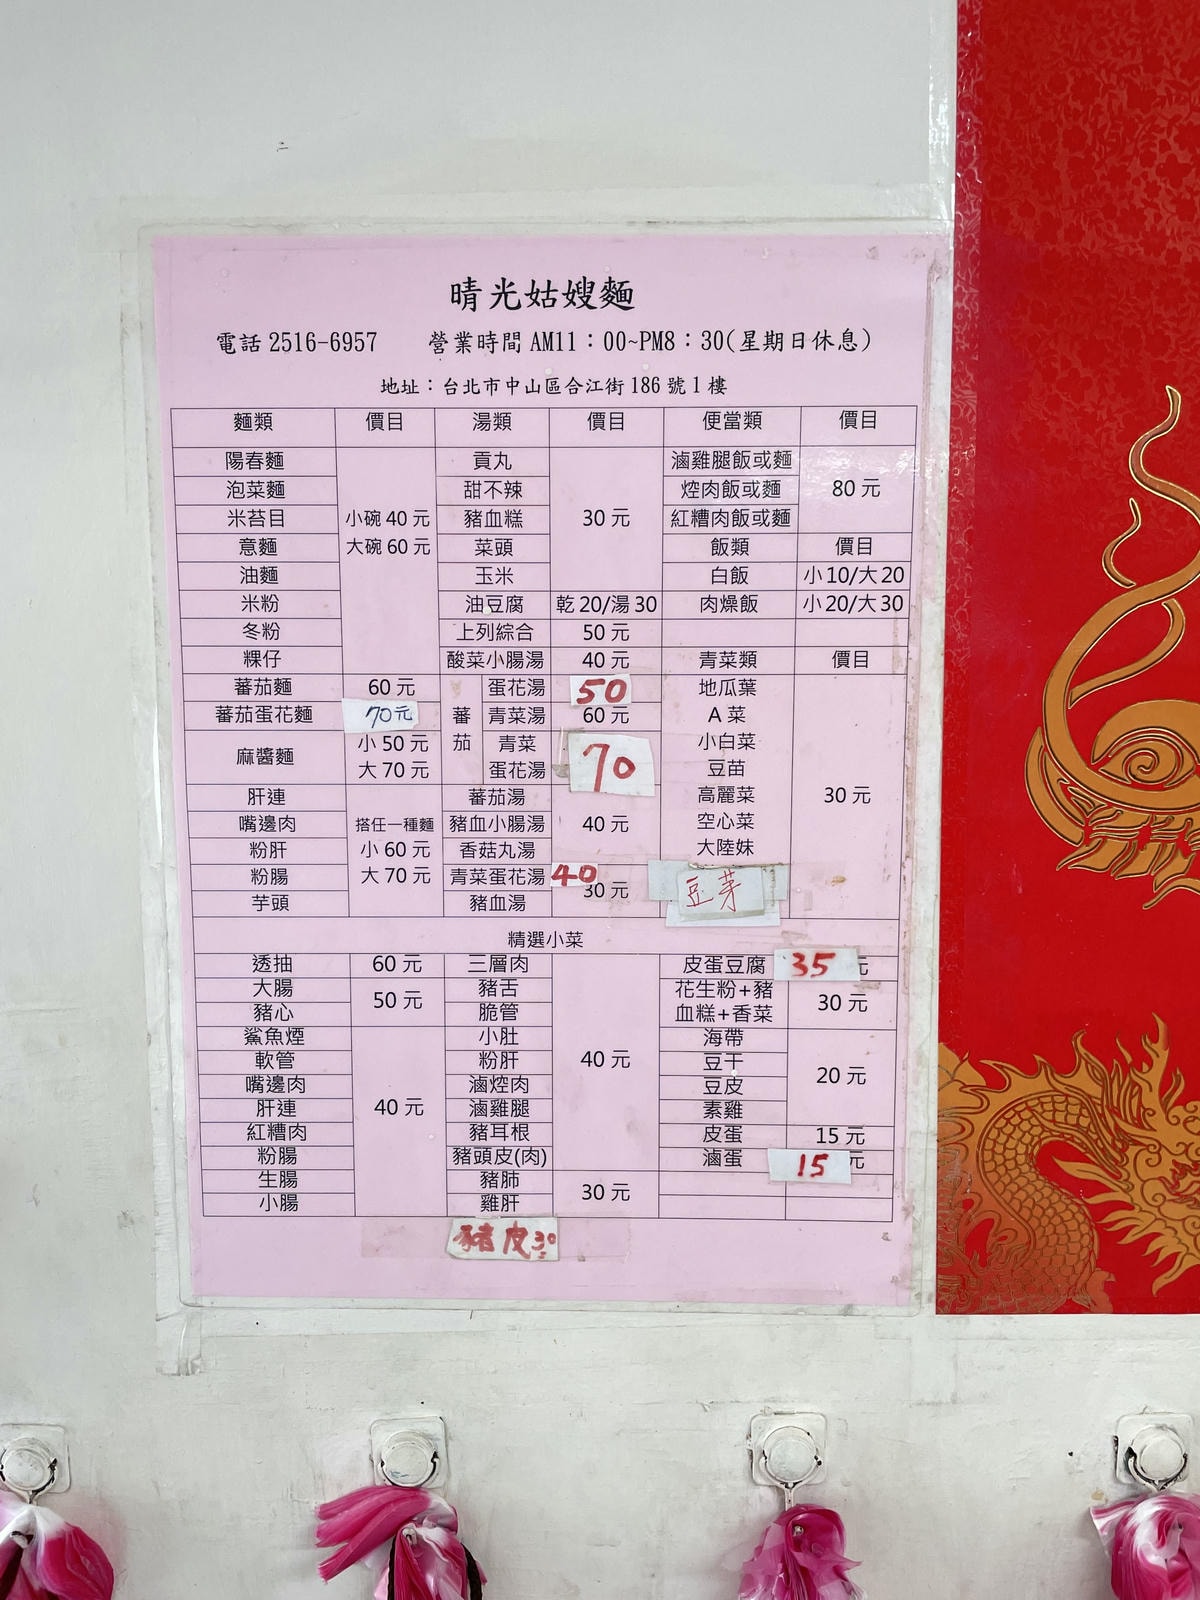 晴光姑嫂麵
電話 2516-6957 營業時間 AM11：00~PM8：30(星期日休息)
地址：台北市中山區合江街 186 號 1 樓
麵類 價目 湯類 價目 便當類 價目
陽春麵 貢丸 滷雞腿飯或麵
泡菜麵 甜不辣 焢肉飯或麵 80 元
米苔目 小碗 40 元 豬血糕 30 元 紅糟肉飯或麵
意麵 大碗 60 元 菜頭 飯類 價目
油麵 玉米 白飯 小 10/大 20
米粉 油豆腐 乾 20/湯 30 肉燥飯 小 20/大 30
冬粉 上列綜合 50 元
粿仔 酸菜小腸湯 40 元 青菜類 價目
蕃茄麵 60 元 蕃 蛋花湯 50 地瓜葉
蕃茄蛋花麵 70元 茄 青菜湯 60 元 A 菜
麻醬麵 小 50 元 青菜 70 小白菜
大 70 元 蛋花湯 豆苗
肝連 蕃茄湯 高麗菜 30 元
嘴邊肉 搭任一種麵 豬血小腸湯 40 元 空心菜
粉肝 小 60 元 香菇丸湯 大陸妹
粉腸 大 70 元 青菜蛋花湯 40 30 元 豆芽
芋頭 豬血湯
精選小菜
透抽 60 元 三層肉 皮蛋豆腐 35 元
大腸 50 元 豬舌 花生粉+豬 30 元
豬心 脆管 血糕+香菜
鯊魚煙 小肚 海帶
軟管 粉肝 40 元 豆干 20 元
嘴邊肉 滷焢肉 豆皮
肝連 40 元 滷雞腿 素雞
紅糟肉 豬耳根 皮蛋 15 元
粉腸 豬頭皮(肉) 滷蛋 15 元
生腸 豬肺 30 元
小腸 雞肝
豬皮30